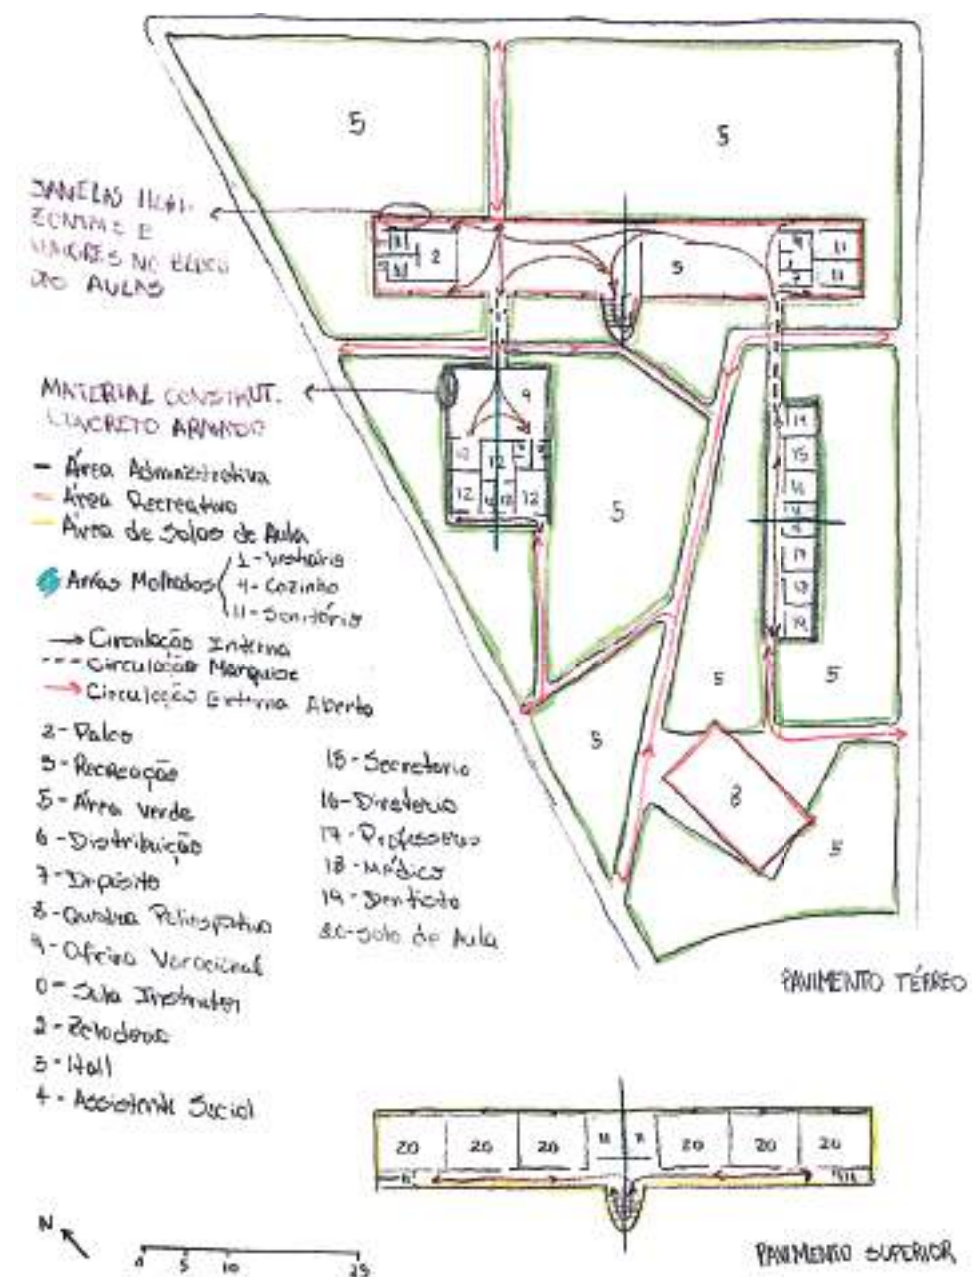 5
5
JANELAS HORI-
ZONTAIS E
NO BLOCO
DAS AULAS
2
11
7
11
MATERIAL CONSTRUT.
CONCRETO ARMADO
9
12
12
12
5
14
15
16
17
18
19
5
5
5
8
5
Área Administrativa
Área Recreativa
Área de Salas de Aula
Áreas Molhadas
1 - Vestiário
4 - Cozinha
11 - Sanitário
Circulação Interna
Circulação Marquise
Circulação Externa Aberta
2 - Palco
3 - Recreação
5 - Área verde
6 - Distribuição
7 - Depósito
8 - Quadra Poliesportiva
9 - Oficina Vocacional
0 - Sala Instrutor
2 - Zeladoria
3 - Hall
4 - Assistente Social
15 - Secretaria
16 - Diretoria
17 - Professores
18 - Médico
19 - Dentista
20 - Sala de Aula
PAVIMENTO TÉRREO
20 20 20 11 11 20 20 20
N
5 10 25
PAVIMENTO SUPERIOR